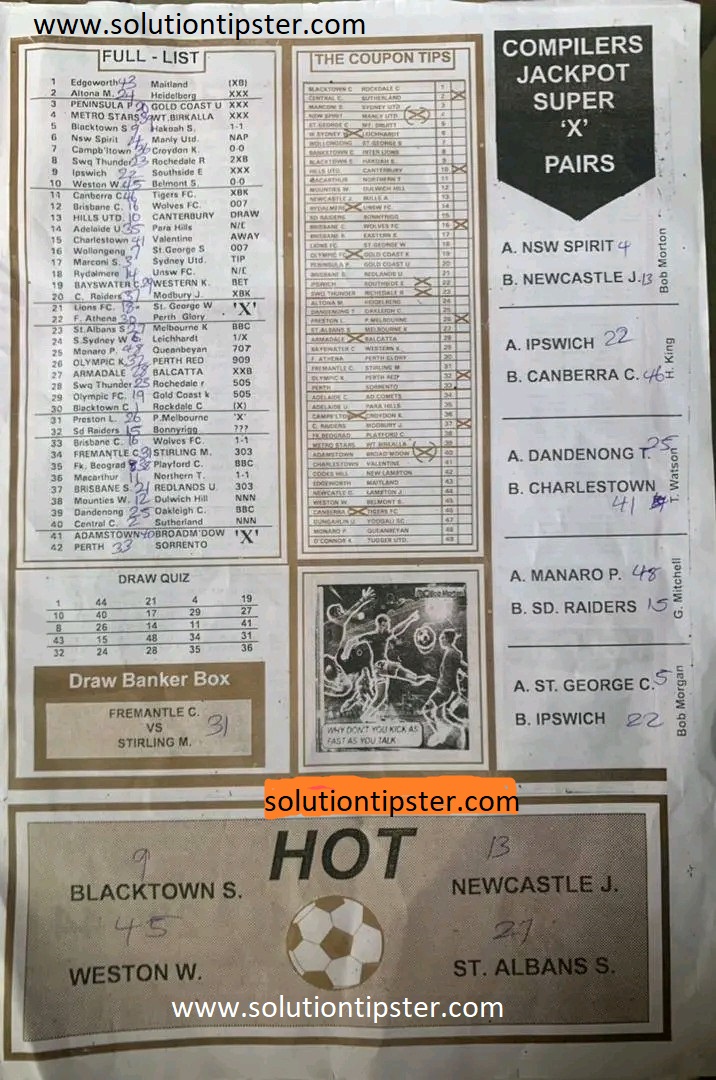 www.solutiontipster.com
FULL - LIST
1 Edgeworth 43 Maitland (XB)
2 Altona M. 24 Heidelberg XXX
3 PENINSULA P. 20 GOLD COAST U XXX
4 METRO STARS WT. BIRKALLA XXX
5 Blacktown S 9 Hakoah S. 1-1
6 Nsw Spirit 4 Manly Utd. NAP
7 Campb'ltown 36 Croydon K. 0-0
8 Swq Thunder 23 Rochedale R 2XB
9 Ipswich 22 Southside E XXX
10 Weston W. 45 Belmont S. 0-0
11 Canberra C 46 Tigers FC. XBK
12 Brisbane C. 16 Wolves FC. 007
13 HILLS UTD. 10 CANTERBURY DRAW
14 Adelaide U 35 Para Hills N/C
15 Charlestown 41 Valentine AWAY
16 Wollongong 7 St.George S 007
17 Marconi S. 3 Sydney Utd. TIP
18 Rydalmere 14 Unsw FC.
19 BAYSWATER C. 29 WESTERN K. BET
20 C. Raiders 37 Modbury J. XBK
21 Lions FC. 18 St. George W 'X'
22 F. Athena 30 Perth Glory
23 St.Albans S 27 Melbourne K BBC
24 S.Sydney W 6 Leichhardt 1/X
25 Monaro P. 48 Queanbeyan 707
26 OLYMPIC K. 32 PERTH RED 909
27 ARMADALE 28 BALCATTA XXB
28 Swq Thunder Rochedale r 505
29 Olympic FC. 19 Gold Coast k 505
30 Blacktown C 1 Rockdale C (X)
31 Preston L. 26 P.Melbourne 'X'
32 Sd Raiders 15 Bonnyrigg ???
33 Brisbane C. 16 Wolves FC. 1-1
34 FREMANTLE C 31 STIRLING M. 303
35 Fk. Beograd 38 Playford C. BBC
36 Macarthur 11 Northern T. 1-1
37 BRISBANE S. 21 REDLANDS U. 303
38 Mounties W. 12 Dulwich Hill NNN
39 Dandenong 25 Oakleigh C. BBC
40 Central C. 2 Sutherland NNN
41 ADAMSTOWN 40 BROADM'DOW 'X'
42 PERTH 33 SORRENTO
THE COUPON TIPS
BLACKTOWN C ROCKDALE C 1
CENTRAL C. SUTHERLAND 2
MARCONI S. SYDNEY UTD 3
NSW SPIRIT MANLY UTD. 4
ST.GEORGE C MT. DRUITT 5
W.SYDNEY LEICHHARDT 6
WOLLONGONG ST.GEORGE S 7
BANKSTOWN C INTER LIONS 8
BLACKTOWN S HAKOAH S. 9
HILLS UTD. CANTERBURY 10
MACARTHUR NORTHERN T 11
MOUNTIES W. DULWICH HILL 12
NEWCASTLE J. BULLS A. 13
RYDALMERE UNSW FC. 14
SD RAIDERS BONNYRIGG 15
BRISBANE C WOLVES FC 16
BRISBANE K EASTERN S. 17
LIONS FC. ST GEORGE W 18
OLYMPIC FC GOLD COAST K 19
PENINSULA P. GOLD COAST U 20
BRISBANE S. REDLANDS U 21
IPSWICH SOUTHSIDE E 22
SWQ THUNDER ROCHEDALE R 23
ALTONA M. HEIDELBERG 24
DANDENONG T OAKLEIGH C. 25
PRESTON L. P.MELBOURNE 26
ST.ALBANS S MELBOURNE K 27
ARMADALE BALCATTA 28
BAYSWATER C WESTERN K. 29
F. ATHENA PERTH GLORY 30
FREMANTLE C. STIRLING M 31
OLYMPIC K. PERTH RED 32
PERTH SORRENTO 33
ADELAIDE C. AD COMETS 34
ADELAIDE U. PARA HILLS 35
CAMPB'LTOWN CROYDON K. 36
C. RAIDERS MODBURY J. 37
FK.BEOGRAD PLAYFORD C. 38
METRO STARS WT BIRKALLA 39
ADAMSTOWN BROAD'MDOW 40
CHARLESTOWN VALENTINE 41
COOKS HILL NEW LAMBTON 42
EDGEWORTH MAITLAND 43
NEWCASTLE O. LAMBTON J. 44
WESTON W. BELMONT S. 45
CANBERRA TIGERS FC 46
DUNGAHLIN U. YOOGALI SC. 47
MONARO P. QUEANBEYAN 48
O'CONNOR K. TUGGER UTD. 49
COMPILERS
JACKPOT
SUPER
'X'
PAIRS
A. NSW SPIRIT 4
B. NEWCASTLE J. 13
Bob Morton
A. IPSWICH 22
B. CANBERRA C. 46
H. King
A. DANDENONG T. 25
B. CHARLESTOWN
41
T. Watson
A. MANARO P. 48
B. SD. RAIDERS 15
G. Mitchell
A. ST. GEORGE C. 5
B. IPSWICH 22
Bob Morgan
DRAW QUIZ
1 44 21 4 19
10 40 17 29 27
8 26 14 11 41
43 15 48 34 31
32 24 28 35 36
Draw Banker Box
FREMANTLE C.
VS 31
STIRLING M.
Bob Morton
WHY DON'T YOU KICK AS
FAST AS YOU TALK
solutiontipster.com
HOT
9 13
BLACKTOWN S. NEWCASTLE J.
45 27
WESTON W. ST. ALBANS S.
www.solutiontipster.com